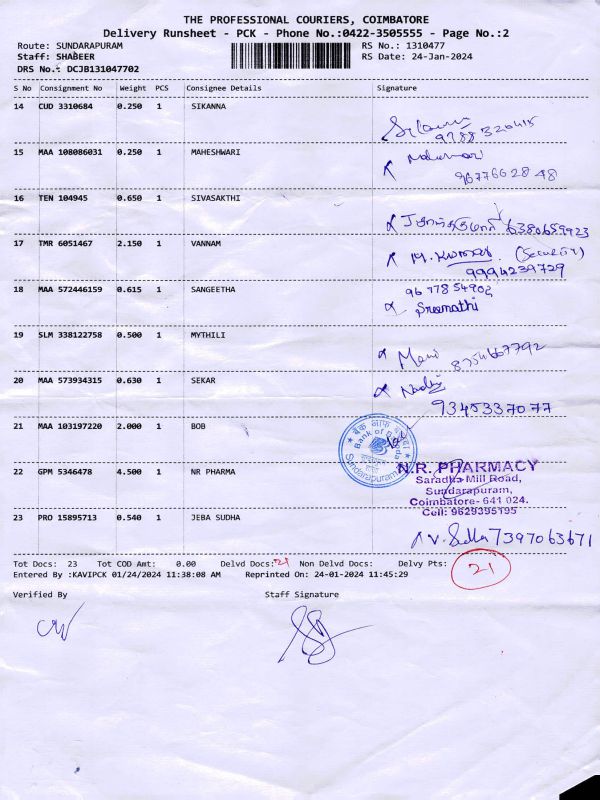 THE PROFESSIONAL COURIERS, COIMBATORE
Delivery Runsheet - PCK - Phone No.:0422-3505555 - Page No.:2
Route: SUNDARAPURAM RS No.: 1310477
Staff: SHABEER RS Date: 24-Jan-2024
DRS No.: DCJB131047702
S No Consignment No Weight PCS Consignee Details Signature
14 CUD 3310684 0.250 1 SIKANNA
15 MAA 108086031 0.250 1 MAHESHWARI
9677662848
16 TEN 104945 0.650 1 SIVASAKTHI
6380659923
17 TMR 6051467 2.150 1 VANNAM
M. Kumar (Security)
9994239729
18 MAA 572446159 0.615 1 SANGEETHA
9677854902
Sreemathi
19 SLM 338122758 0.500 1 MYTHILI
Mani 8754667792
20 MAA 573934315 0.630 1 SEKAR
9345337077
21 MAA 103197220 2.000 1 BOB
बैंक ऑफ बड़ौदा
Bank of Baroda
Sundarapuram
22 GPM 5346478 4.500 1 NR PHARMA
N.R. PHARMACY
Saradha Mill Road,
Sundarapuram,
Coimbatore- 641 024.
Cell: 9629395195
23 PRO 15895713 0.540 1 JEBA SUDHA
V. Sudha 7397063671
Tot Docs: 23 Tot COD Amt: 0.00 Delvd Docs: 21 Non Delvd Docs: Delvy Pts: 21
Entered By :KAVIPCK 01/24/2024 11:38:08 AM Reprinted On: 24-01-2024 11:45:29
Verified By Staff Signature